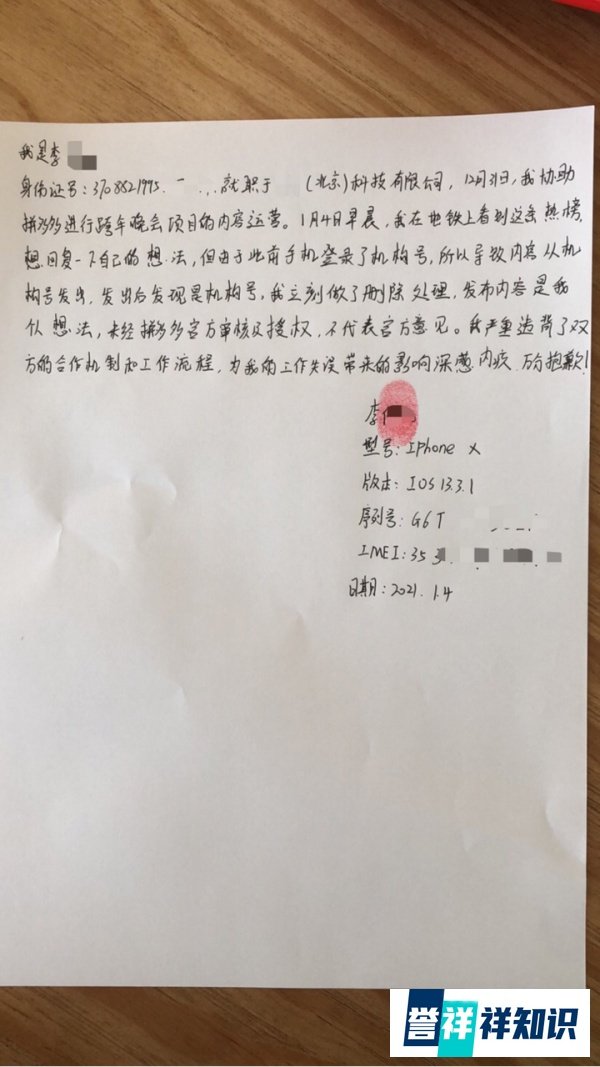 我是李
身份证号：3708821995. 就职于 (北京)科技有限公司，12月31日，我协助
拼多多进行跨年晚会项目的内容运营。1月4日早晨，我在地铁上看到这条热榜，
想回复一下自己的想法，但由于此前手机登录了机构号，所以导致内容从机
构号发出，发出后发现是机构号，我立刻做了删除处理，发布内容是我
个人想法，未经拼多多官方审核及授权，不代表官方意见。我严重违背了双
方的合作机制和工作流程，为我的工作失误带来的影响深感内疚，万分抱歉！
李
型号：IPhone X
版本：IOS 13.3.1
序列号：G6T
IMEI：35
日期：2021.1.4
誉祥祥知识